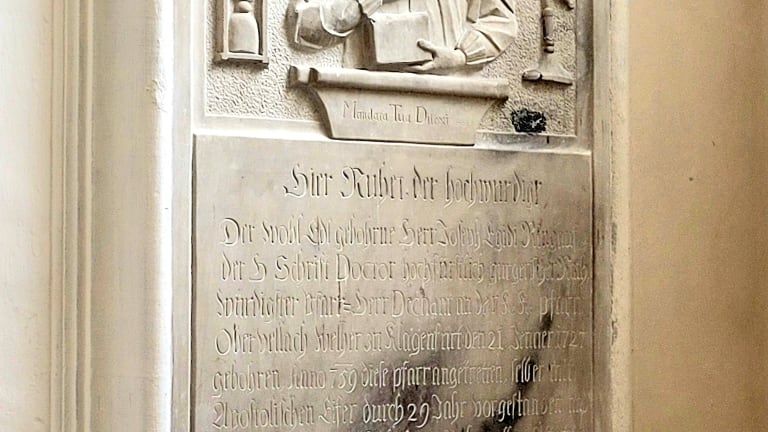 Mandata Tua Dilexi
Hier Ruhet der hochwürdige
Der Wohl Edl gebohrne Herr Joseph Egidi
der H Schrift Doctor hochfürstlich gurgerischer Rath
Würdigster Pfarr Herr Dechant an der K. K. pfarr
Ober vellach Welher zu Klagenfurt den 21 Jenner 1727
gebohren Anno 759 diese pfarr angetretten selber mit
Apostolischen Eifer durch 29 Jahr vorgestanden